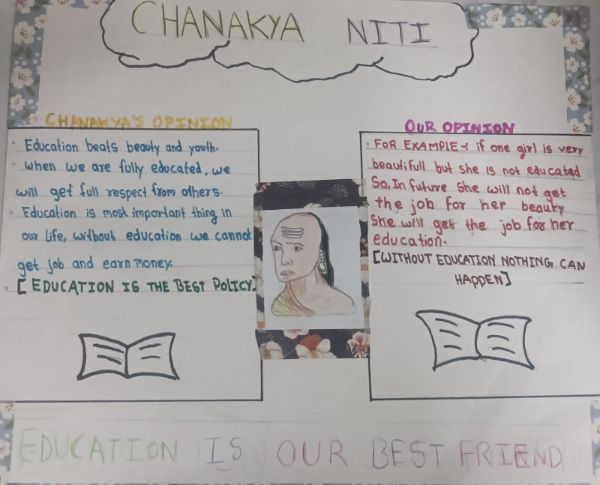 CHANAKYA NITI
CHANAKYA'S OPINION
• Education beats beauty and youth.
• when we are fully educated, we
will get full respect from others.
• Education is most important thing in
our life, without education we cannot
get job and earn money.
• [EDUCATION IS THE BEST POLICY]
OUR OPINION
• FOR EXAMPLE - if one girl is very
beautifull but she is not educated
So, In future she will not get
the job for her beauty
She will get the job for her
education.
[WITHOUT EDUCATION NOTHING CAN
HAPPEN]
EDUCATION IS OUR BEST FRIEND